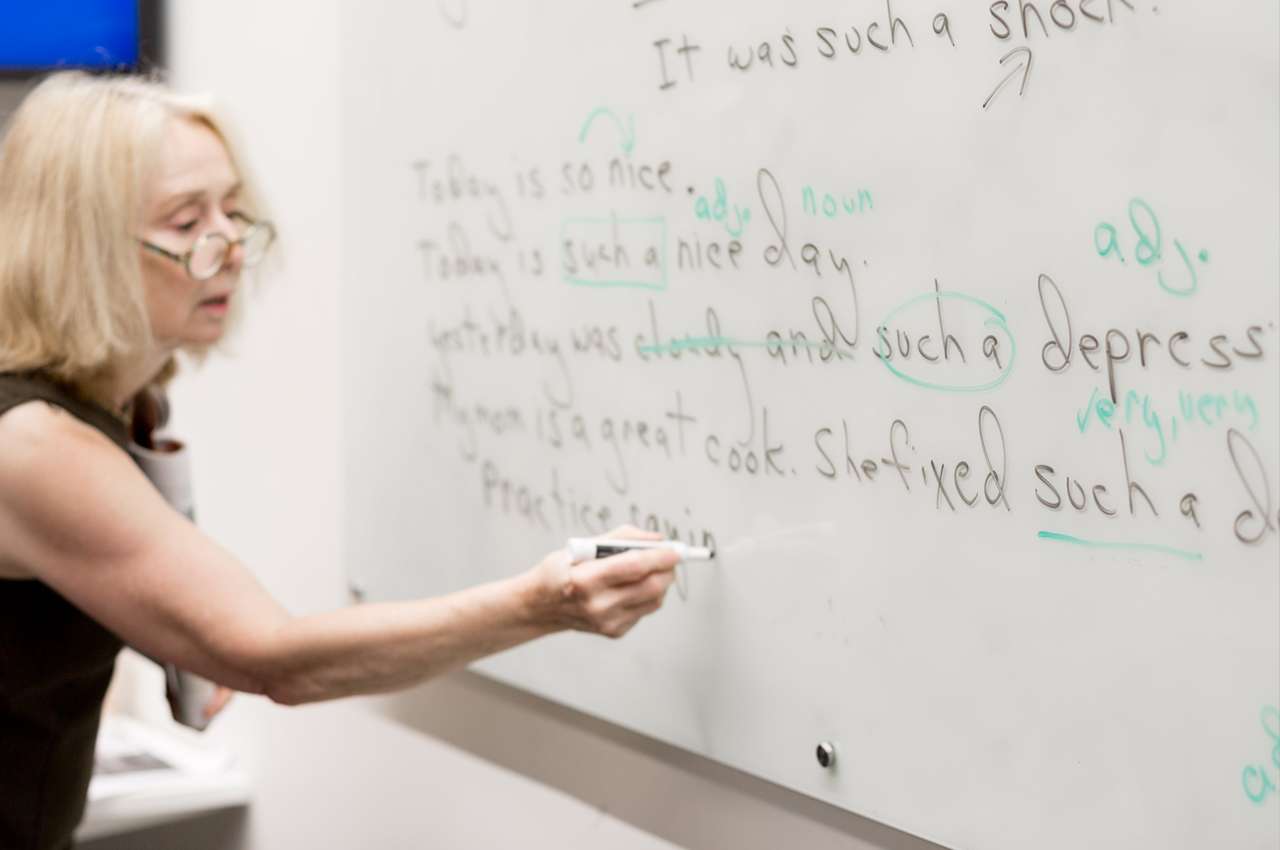 It was such a shock.
Today is so nice.
adj. noun
Today is such a nice day.
adj.
yesterday was cloudy and such a depress
very, very
My mom is a great cook. She fixed such a d
Practice sayin